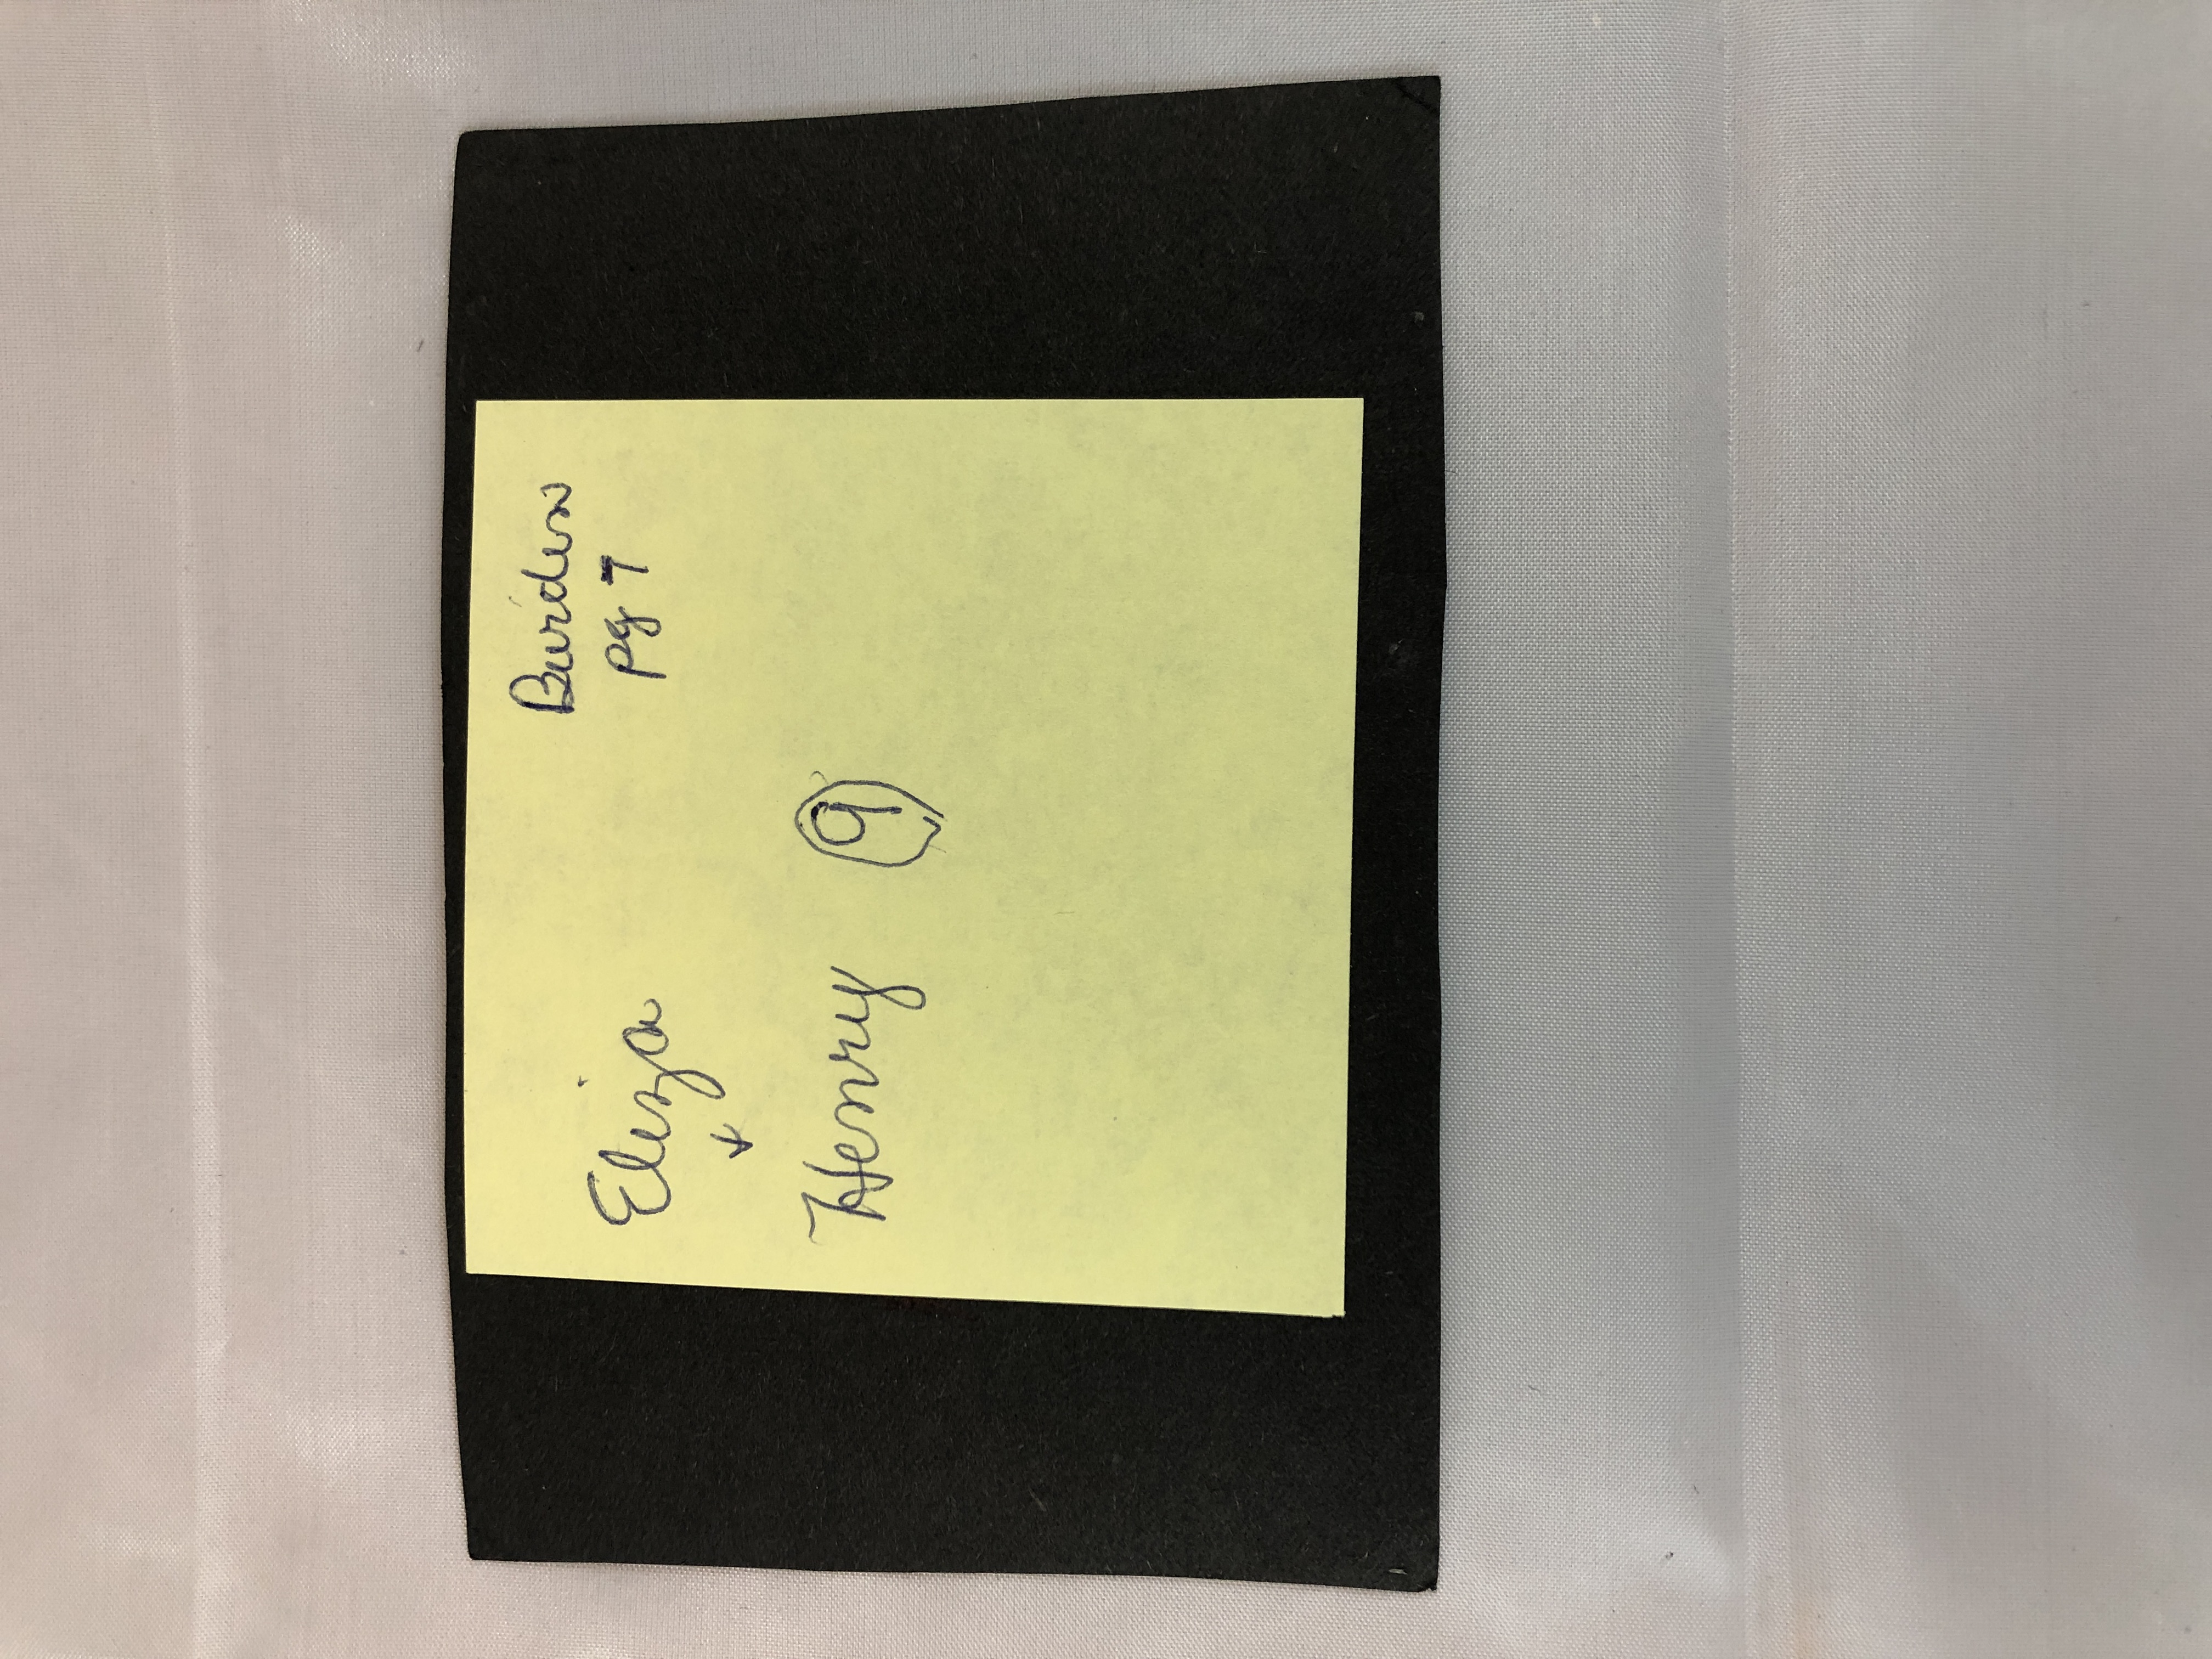 Burden
pg 7
Eliza
+
Henry 9